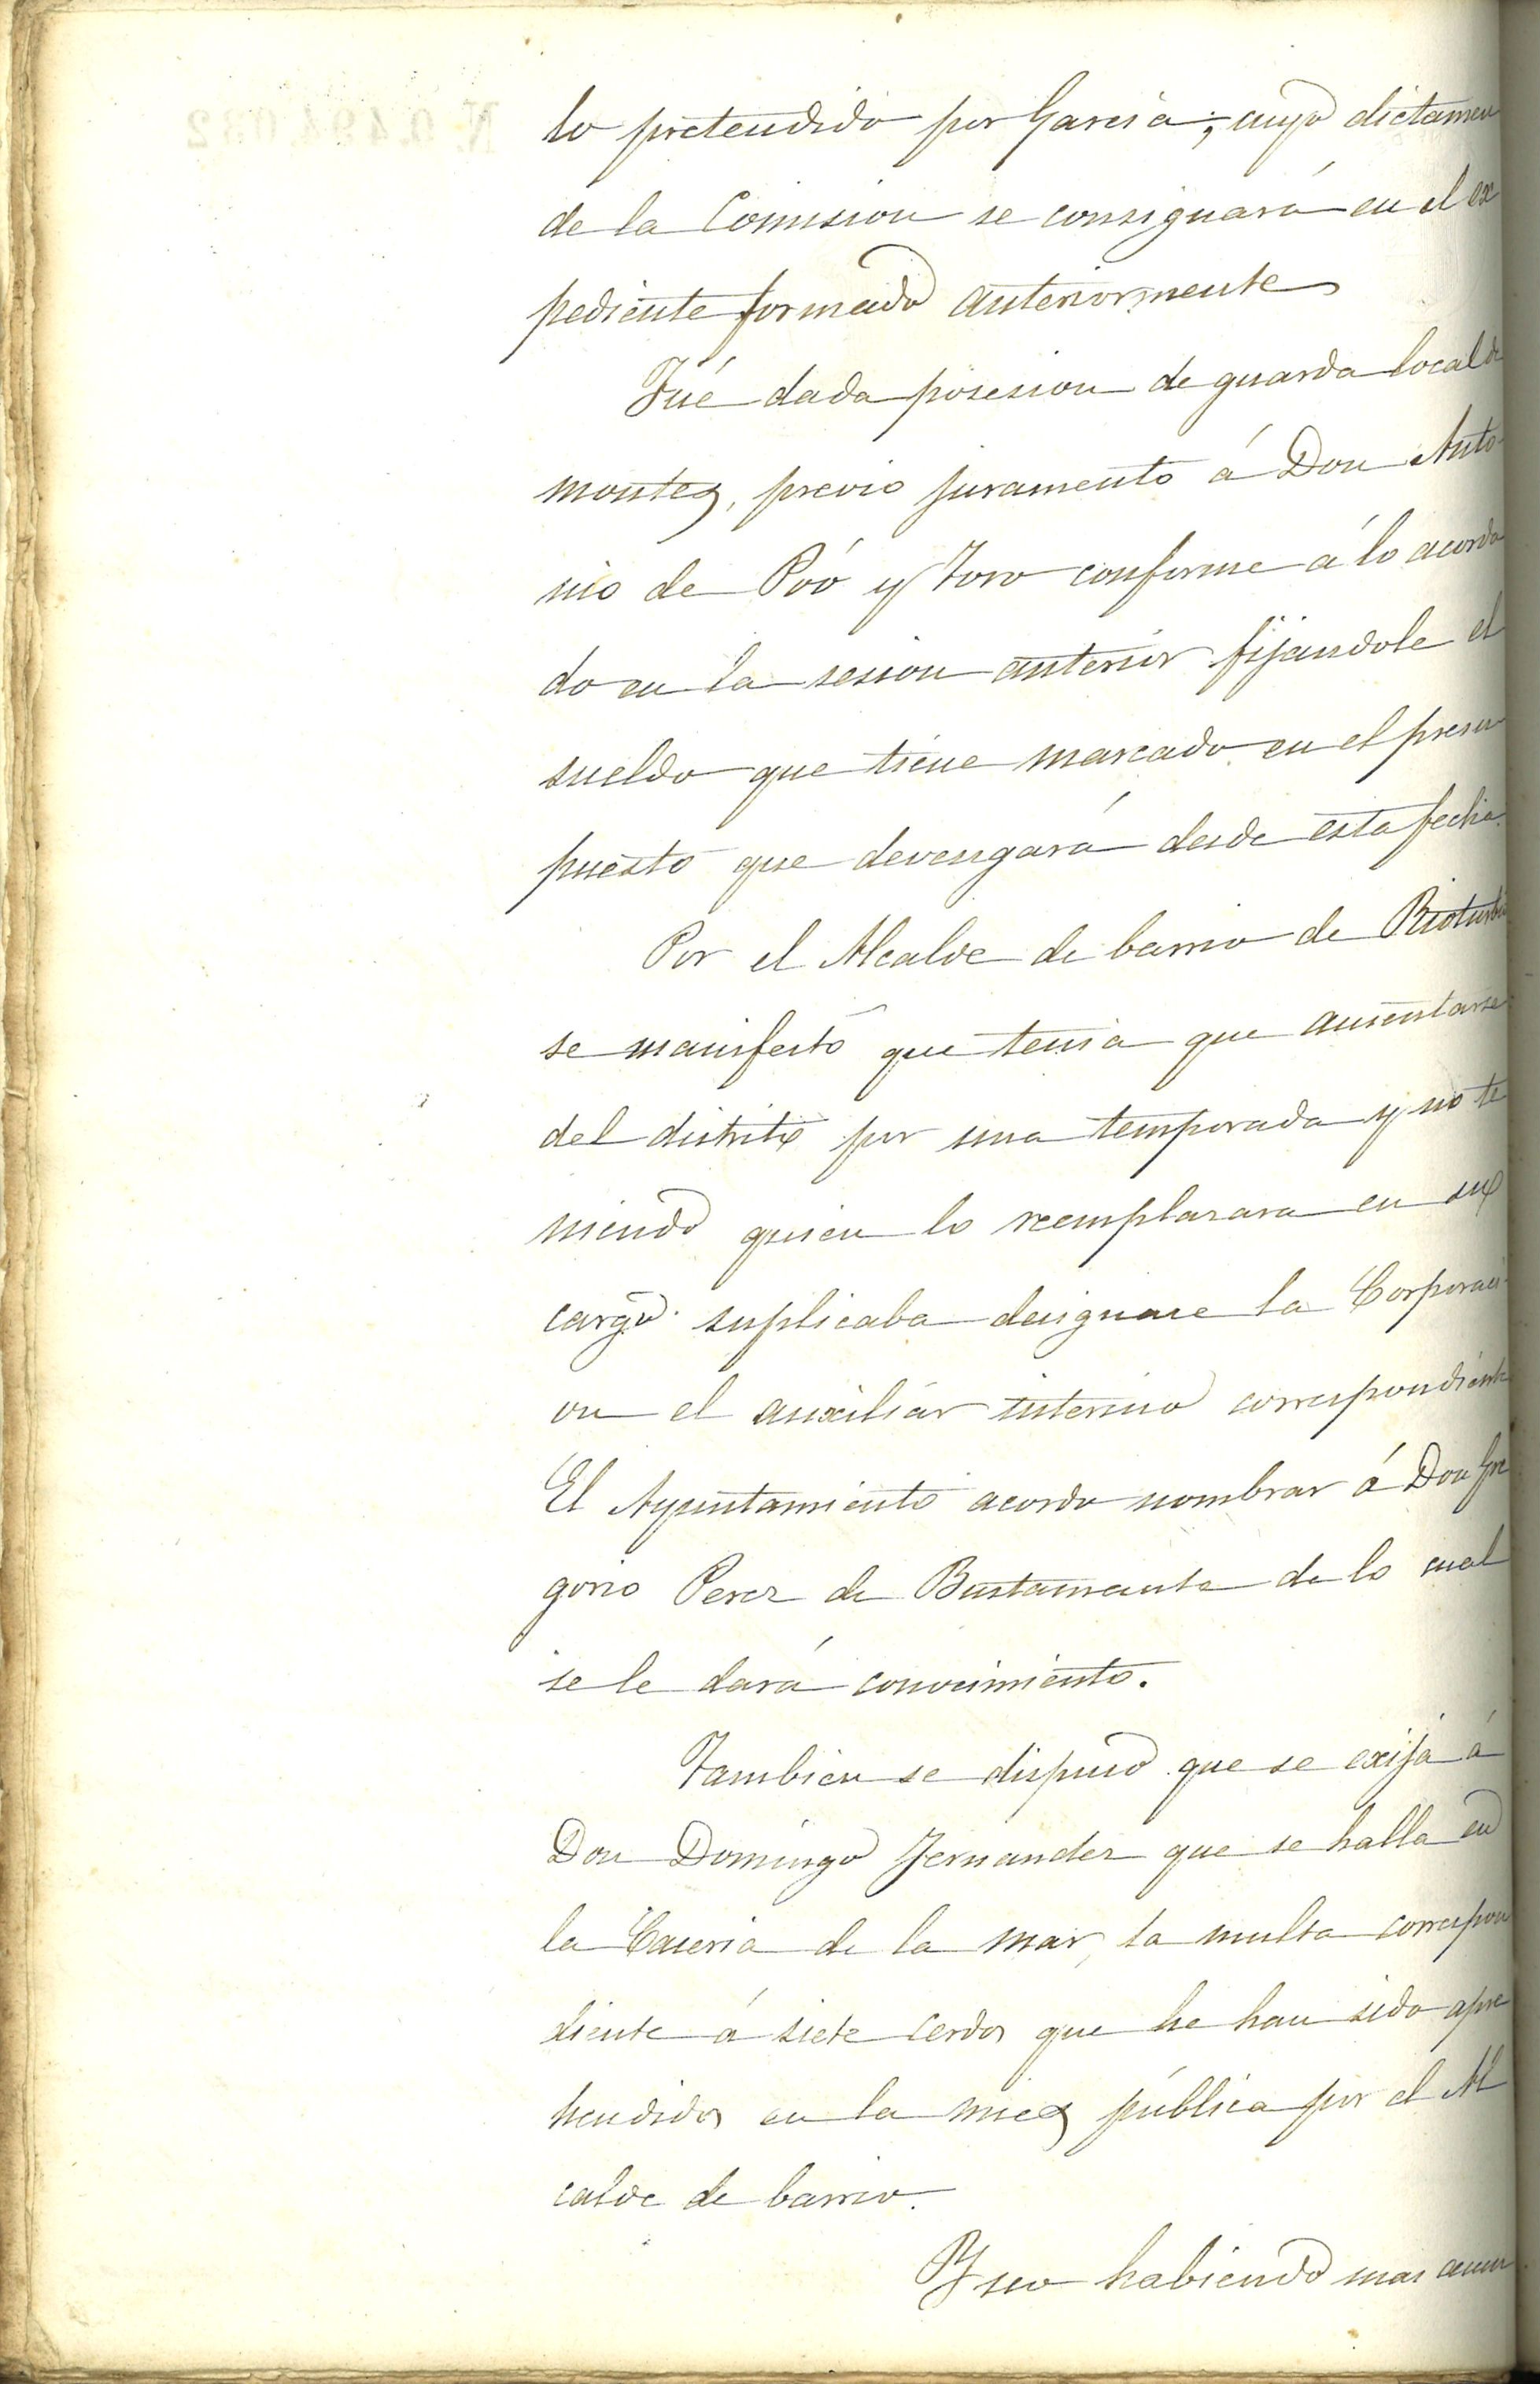 lo pretendido por Garcia; cuyo dictamen
de la Comision se consignará en el ex
pediente formado anteriormente
Fué dada posesion de guarda local de
montes, previo juramento á Don Anto-
nio de Poó y Toro conforme á lo acorda
do en la sesion anterior fijandole el
sueldo que tiene marcado en el presu
puesto que devengará desde esta fecha.
Por el Alcalde de barrio de
se manifestó que tenia que ausentarse
del distrito por una temporada y no te
niendo quien lo reemplazara en su
cargo suplicaba designase la Corporaci-
on el auxiliar interino correspondiente
El Ayuntamiento acordo nombrar á Don Gre
gorio Perez de Bustamante de lo cual
se le dará conocimiento.
Tambien se dispuso que se exija á
Don Domingo Fernandez que se halla en
la Caseria de la mar, la multa correspon
diente á siete cerdos que le han sido apre
hendidos en la mies pública por el Al
calde de barrio.
Y no habiendo mas